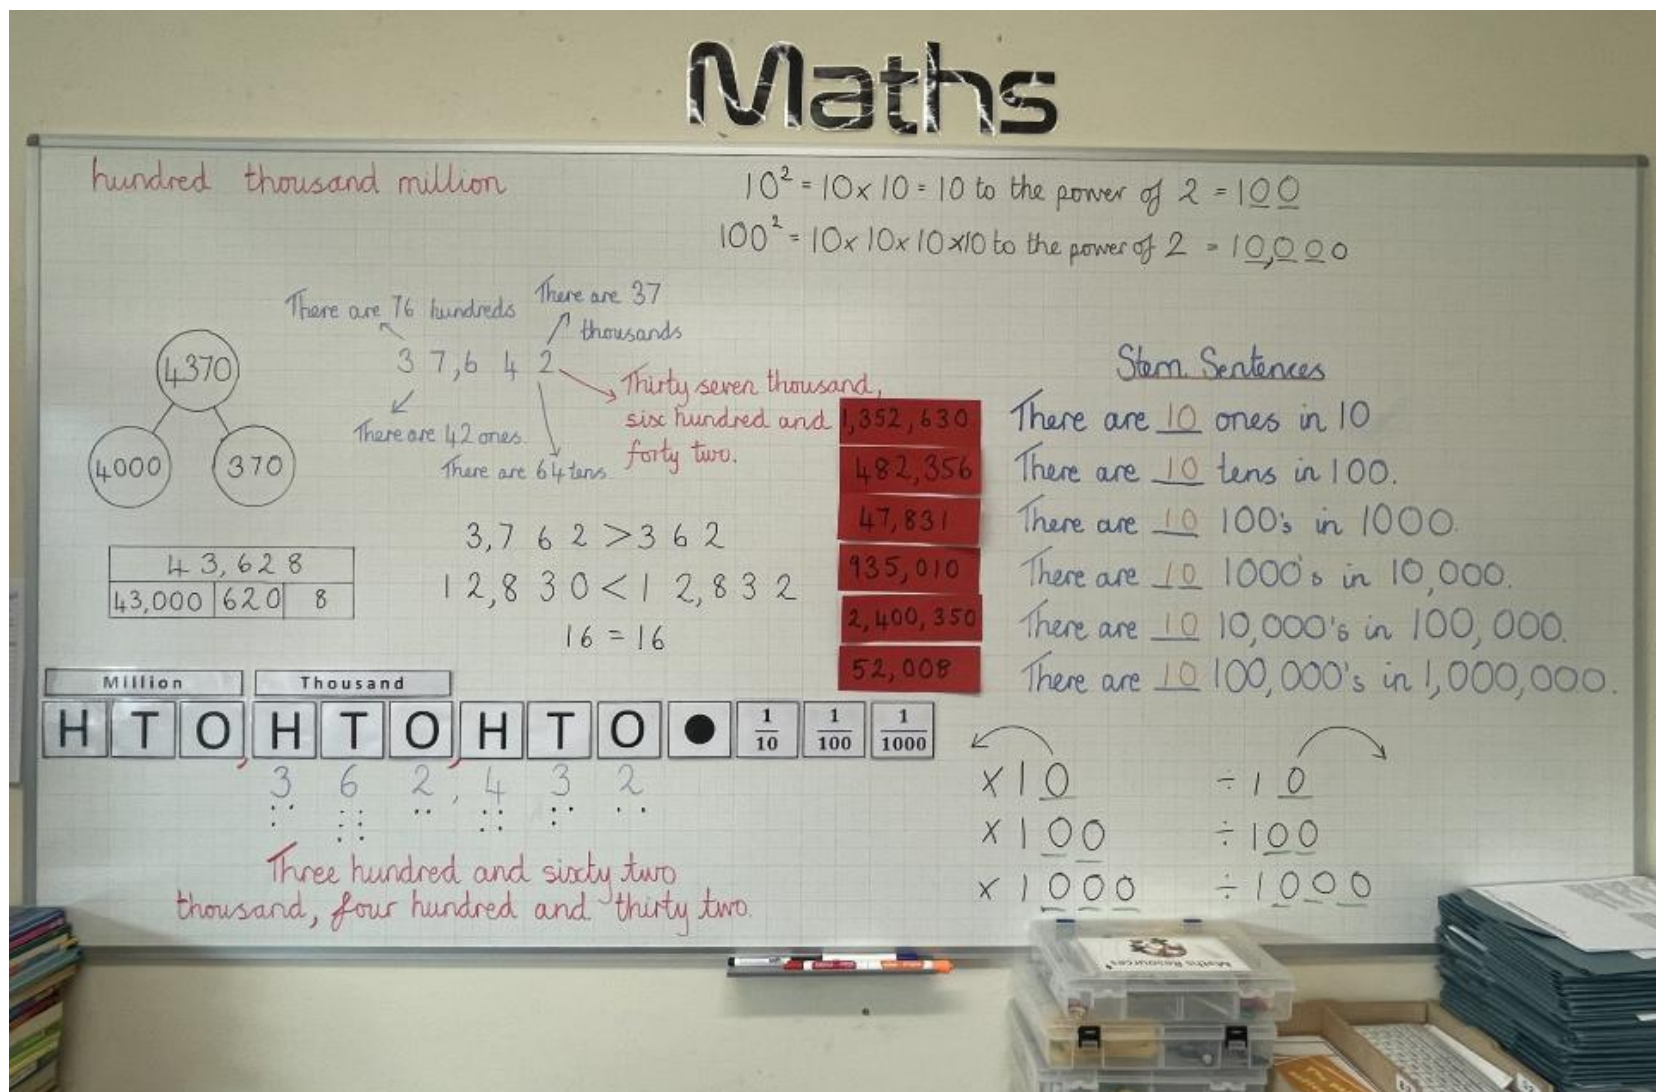 Maths
hundred thousand million
10² = 10 x 10 = 10 to the power of 2 = 100
100² = 10 x 10 x 10 x 10 to the power of 2 = 10,000
There are 76 hundreds
There are 37
thousands
3 7,6 4 2
There are 42 ones.
There are 64 tens.
Thirty seven thousand,
six hundred and
forty two.
4370
4000 370
43,628
43,000 620 8
3,762 > 362
12,830 < 12,832
16 = 16
1,352,630
482,356
47,831
935,010
2,400,350
52,008
Stem Sentences
There are 10 ones in 10
There are 10 tens in 100.
There are 10 100's in 1000.
There are 10 1000's in 10,000.
There are 10 10,000's in 100,000.
There are 10 100,000's in 1,000,000.
Million Thousand
H T O , H T O , H T O ● 1/10 1/100 1/1000
3 6 2 , 4 3 2
Three hundred and sixty two
thousand, four hundred and thirty two.
x 10 ÷ 10
x 100 ÷ 100
x 1000 ÷ 1000
Maths Resources